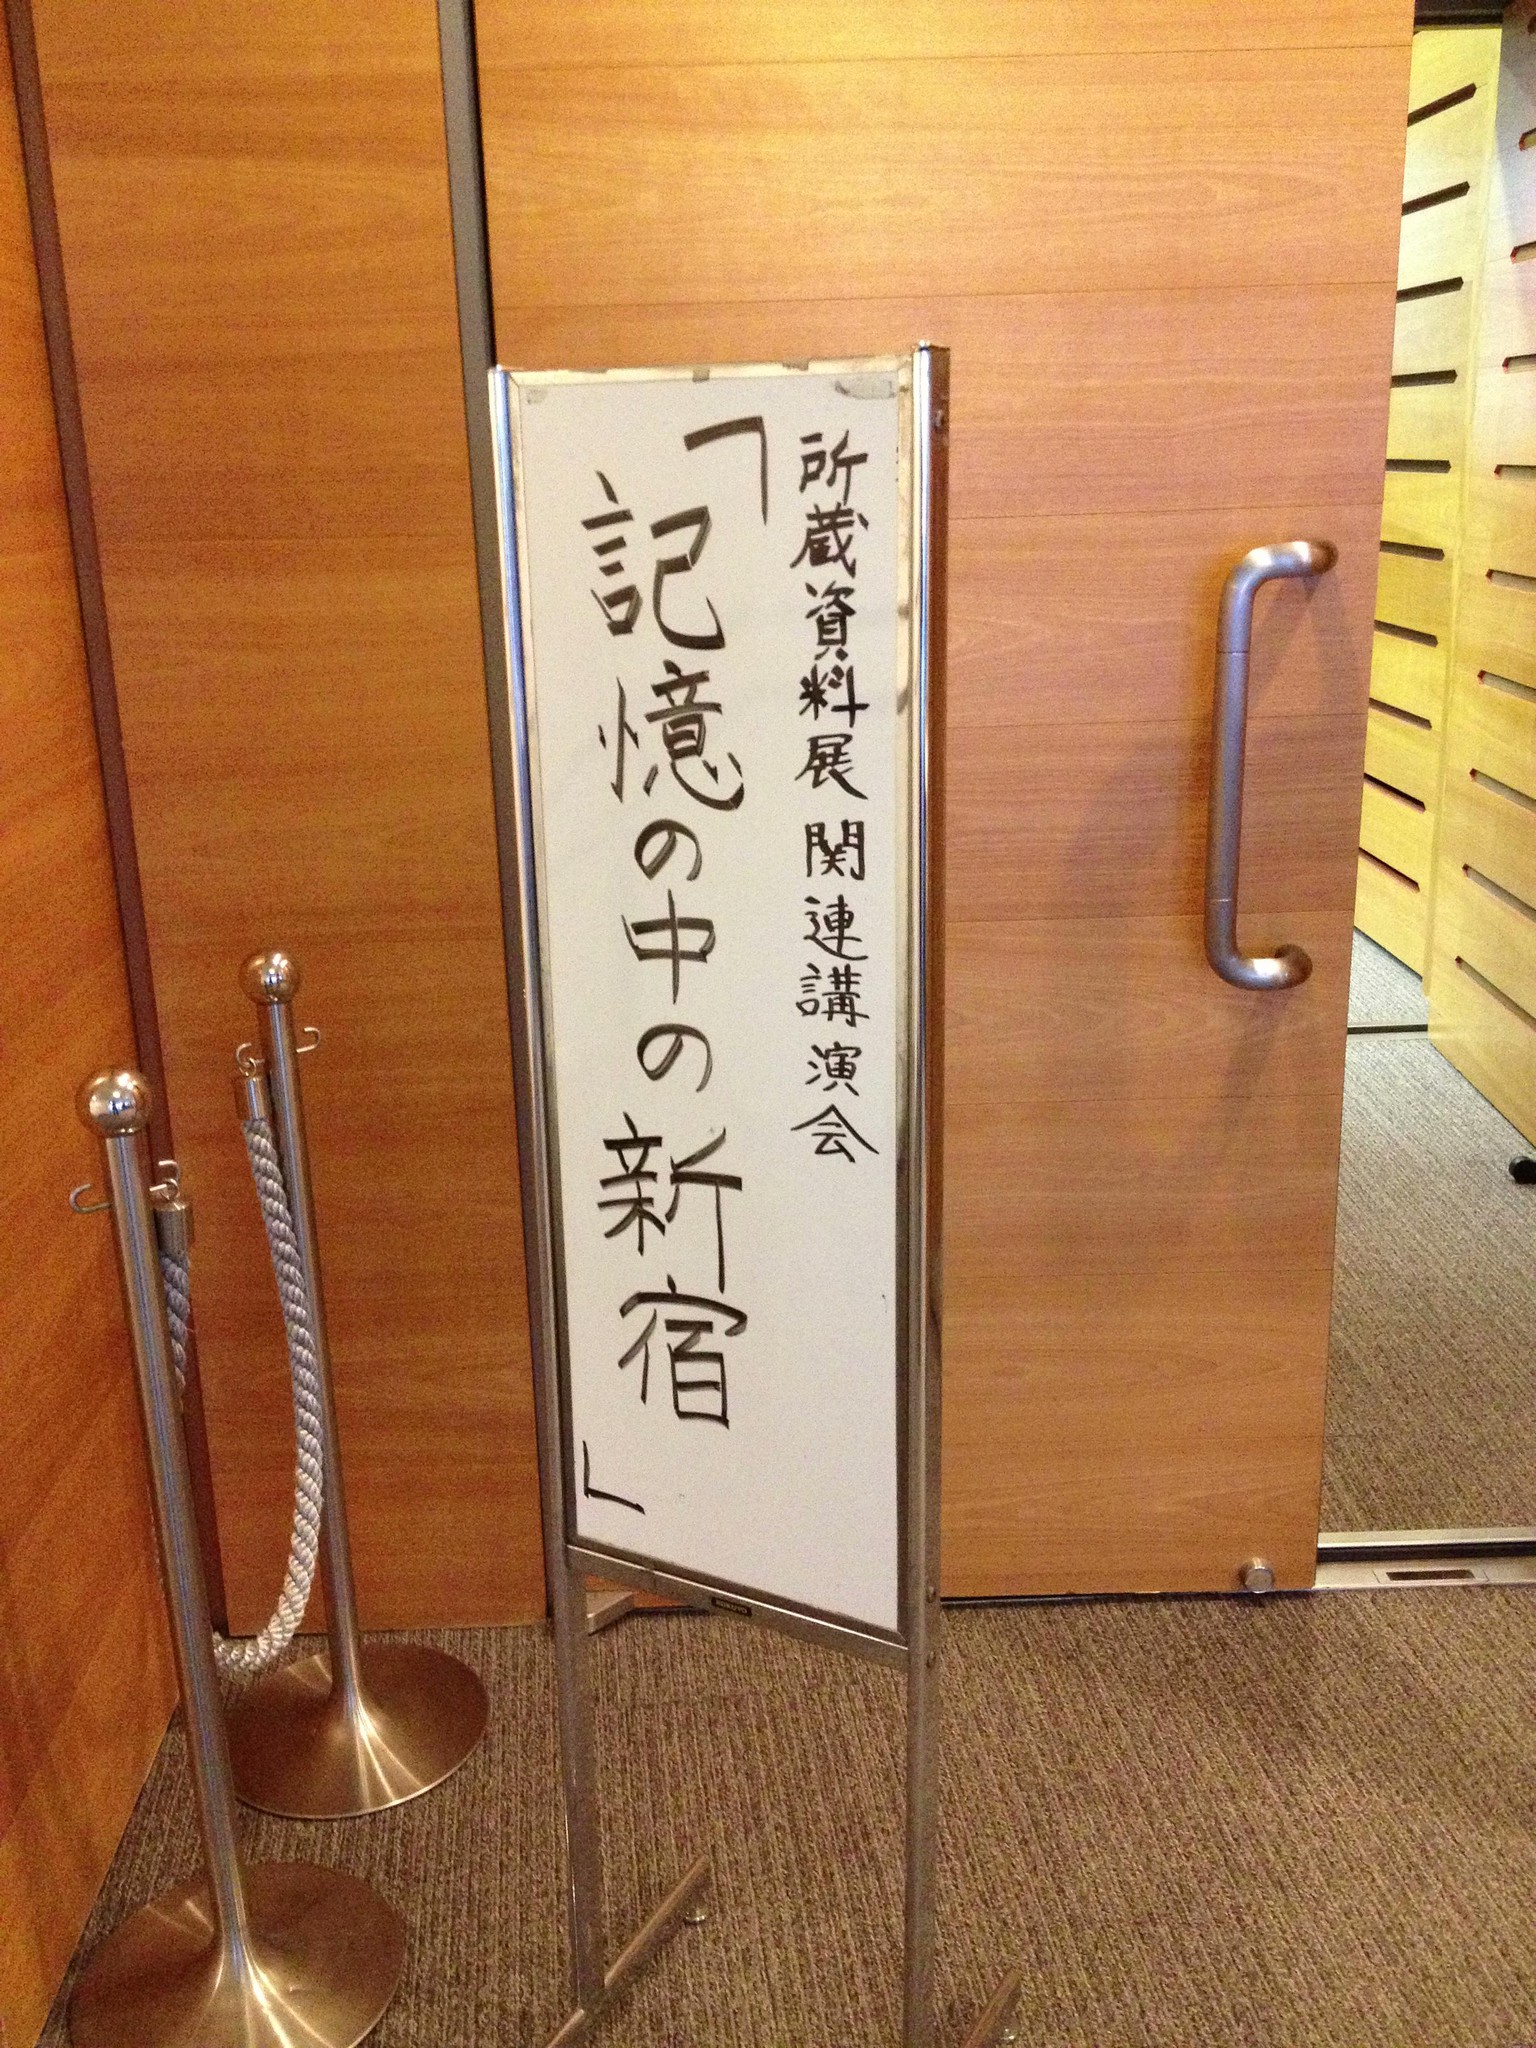 所蔵資料展 関連講演会
「記憶の中の新宿」
KOKUYO